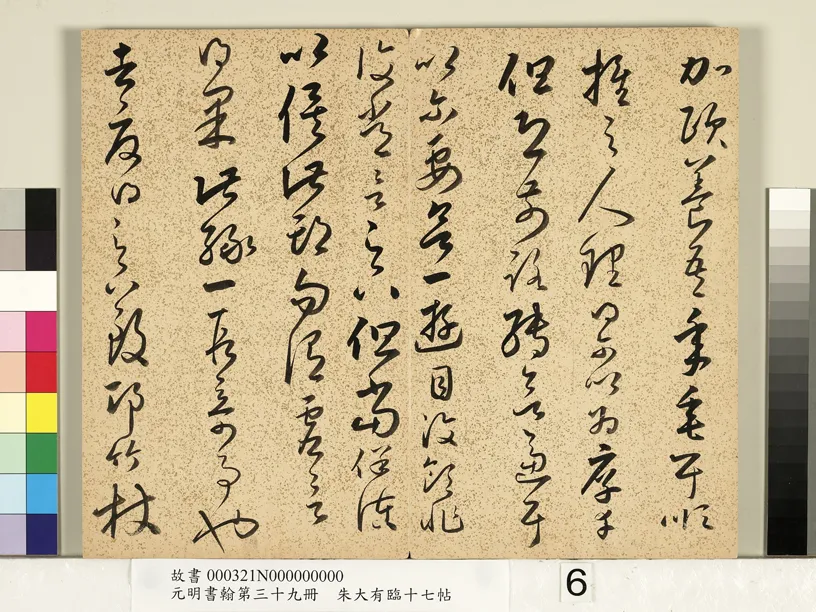 加頤養吾年垂耳順
推之人理得尔以為厚幸
但恐前路轉欲逼耳
以尔要欲一遊目汶領非
復常言足下但當保護
以俟此期勿謂虛言
得果此緣一段奇事也
去夏得足下致邛竹杖
故書 000321N000000000
元明書翰第三十九冊 朱大有臨十七帖
6